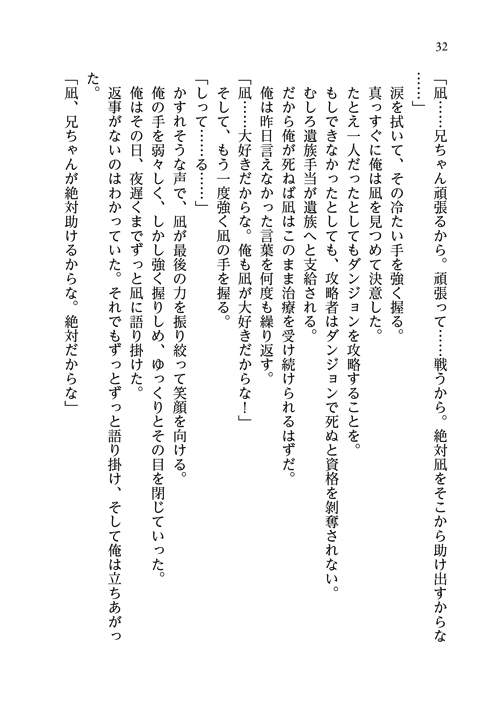 32
「凪……兄ちゃん頑張るから。頑張って……戦うから。絶対凪をそこから助け出すからな
……」
涙を拭いて、その冷たい手を強く握る。
真っすぐに俺は凪を見つめて決意した。
たとえ一人だったとしてもダンジョンを攻略することを。
もしできなかったとしても、攻略者はダンジョンで死ぬと資格を剝奪されない。
むしろ遺族手当が遺族へと支給される。
だから俺が死ねば凪はこのまま治療を受け続けられるはずだ。
俺は昨日言えなかった言葉を何度も繰り返す。
「凪……大好きだからな。俺も凪が大好きだからな！」
そして、もう一度強く凪の手を握る。
「しって……る……」
かすれそうな声で、凪が最後の力を振り絞って笑顔を向ける。
俺の手を弱々しく、しかし強く握りしめ、ゆっくりとその目を閉じていった。
俺はその日、夜遅くまでずっと凪に語り掛けた。
返事がないのはわかっていた。それでもずっとずっと語り掛け、そして俺は立ちあがっ
た。
「凪、兄ちゃんが絶対助けるからな。絶対だからな」